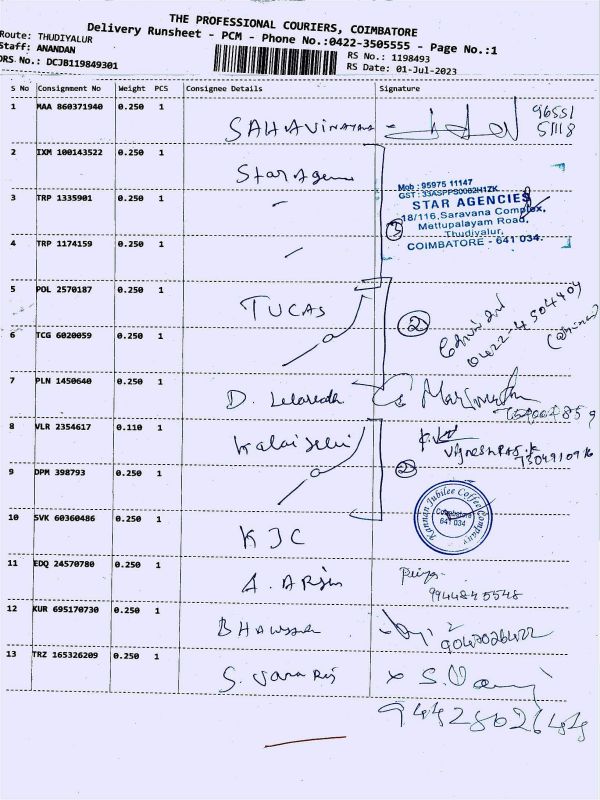 THE PROFESSIONAL COURIERS, COIMBATORE
Delivery Runsheet - PCM - Phone No.:0422-3505555 - Page No.:1
Route: THUDIYALUR
Staff: ANANDAN
DRS No.: DCJB119849301
RS No.: 1198493
RS Date: 01-Jul-2023
S No Consignment No Weight PCS Consignee Details Signature
1 MAA 860371940 0.250 1
96551
51118
2 IXM 100143522 0.250 1 Star Agen
Mob : 95975 11147
GST : 33ASPPS0062H1ZK
STAR AGENCIES
18/116,Saravana Complex,
Mettupalayam Road,
Thudiyalur,
COIMBATORE - 641 034.
3 TRP 1335901 0.250 1
3
4 TRP 1174159 0.250 1
5 POL 2570187 0.250 1 TUCAS
2
6 TCG 6020059 0.250 1
7 PLN 1450640 0.250 1
8 VLR 2354617 0.110 1 Kalaiselvi
9 DPM 398793 0.250 1
2
Kannan Jubilee Coffee Company
Coimbatore
641 034
10 SVK 60360486 0.250 1 KJC
11 EDQ 24570780 0.250 1 A. Arjun
9944845548
12 KUR 695170730 0.250 1
9047026422
13 TRZ 165326209 0.250 1
9442862644